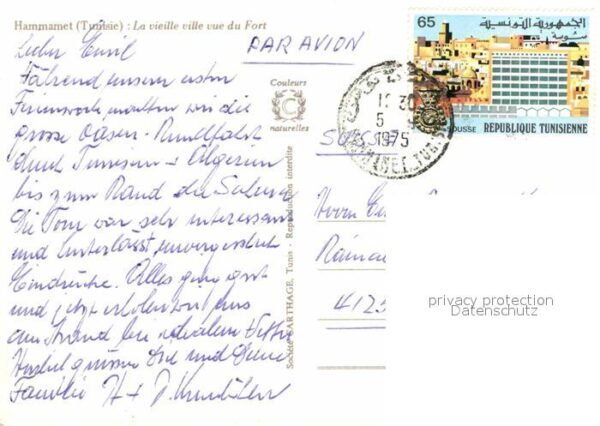 Hammamet (Tunisie) : La vieille ville vue du Fort
Lieber Emil
PAR AVION
Während unserer ersten
Ferienwoche machten wir die
grosse Oasen-Rundfahrt
durch Tunesien + Algerien
bis zum Rand der Sahara
Die Tour war sehr interessant
und hinterlässt unvergessliche
Eindrücke. Alles ging gut
und jetzt erholen wir uns
am Strand bei schönem Wetter
Herzlich grüssen Dich und Deine
Familie H +
Couleurs
C
naturelles
Société CARTHAGE, Tunis - Reproduction interdite
65
الجمهورية التونسية
سوسة
SOUSSE REPUBLIQUE TUNISIENNE
5
1975
SUISSE
Herrn
4125
privacy protection
Datenschutz